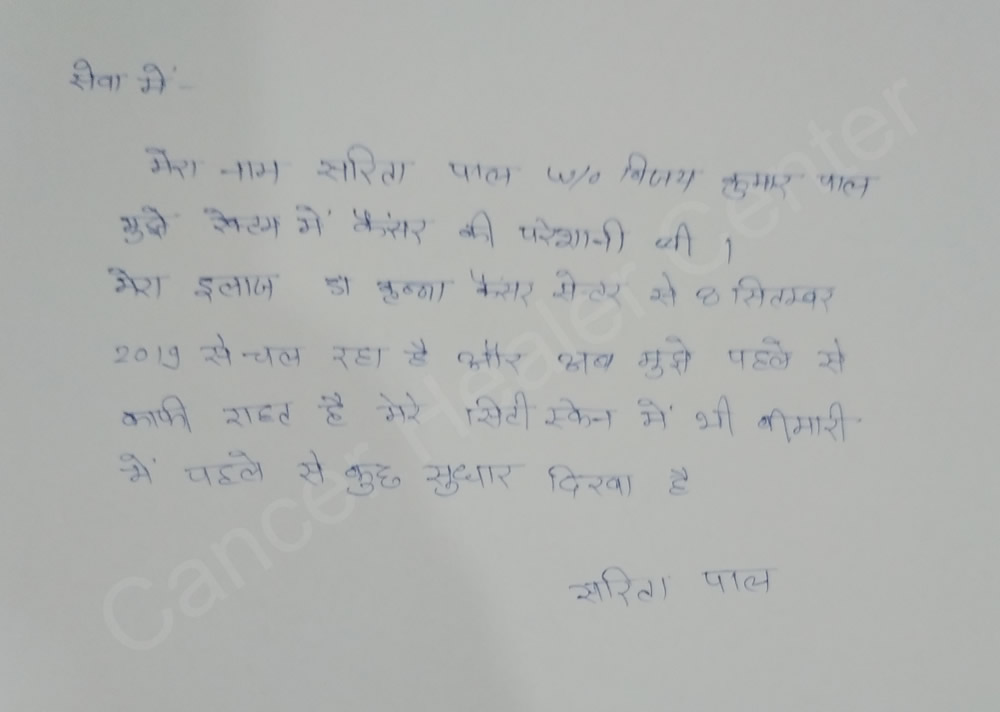 सेवा में -
मेरा नाम सरिता पाल w/o विजय कुमार पाल
मुझे रेक्टम में कैंसर की परेशानी थी ।
मेरा इलाज डा कृष्णा कैंसर सेन्टर से 8 सितम्बर
2019 से चल रहा है और अब मुझे पहले से
काफी राहत है मेरे सिटी स्केन में भी बीमारी
में पहले से कुछ सुधार दिखा है
सरिता पाल
Cancer Healer Center